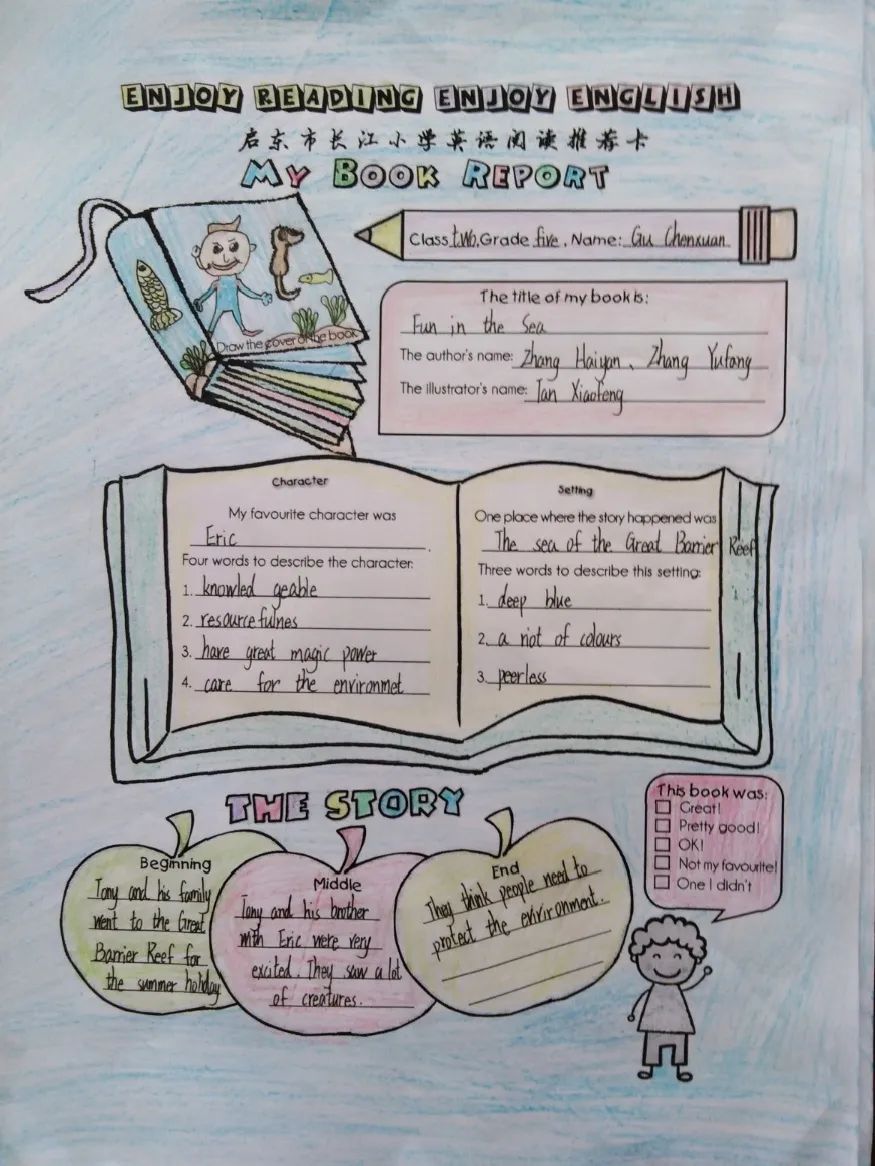 ENJOY READING ENJOY ENGLISH
启东市长江小学英语阅读推荐卡
MY BOOK REPORT
Class two, Grade five, Name: Gu Chenxuan
Draw the cover of the book
The title of my book is:
Fun in the Sea
The author's name: Zhang Haiyan、Zhang Yufang
The illustrator's name: Tan Xiaofeng
Character
My favourite character was
Eric.
Four words to describe the character:
1. knowled geable
2. resourcefulnes
3. have great magic power
4. care for the environmet
Setting
One place where the story happened was
The sea of the Great Barrier Reef
Three words to describe this setting:
1. deep blue
2. a riot of colours
3. peerless
THE STORY
Beginning
Tony and his family
went to the Great
Barrier Reef for
the summer holiday
Middle
Tony and his brother
with Eric were very
excited. They saw a lot
of creatures.
End
They think people need to
protect the environment.
This book was:
Great!
Pretty good!
OK!
Not my favourite!
One I didn't